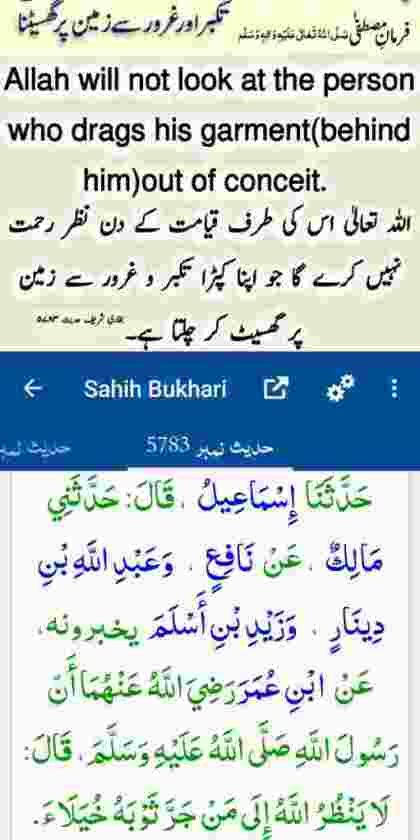 فرمانِ مصطفٰی صلی اللہ تعالٰی علیہ والہ وسلم تکبر اور غرور سے زمین پر گھسیٹنا
Allah will not look at the person
who drags his garment(behind
him)out of conceit.
اللہ تعالٰی اس کی طرف قیامت کے دن نظر رحمت
نہیں کرے گا جو اپنا کپڑا تکبر و غرور سے زمین
پر گھسیٹ کر چلتا ہے۔
Sahih Bukhari
حدیث نمبر 5783 حدیث نمبر
حَدَّثَنَا إِسْمَاعِيلُ ، قَالَ: حَدَّثَنِي
مَالِكٌ ، عَنْ نَافِعٍ ، وَعَبْدِ اللَّهِ بْنِ
دِينَارٍ ، وَزَيْدِ بْنِ أَسْلَمَ يخبرونه،
عَنْ ابْنِ عُمَرَ رَضِيَ اللَّهُ عَنْهُمَا أَنّ
رَسُولَ اللَّهِ صَلَّى اللَّهُ عَلَيْهِ وَسَلَّمَ، قَالَ:
لَا يَنْظُرُ اللَّهُ إِلَى مَنْ جَرَّ ثَوْبَهُ خُيَلَاءَ.